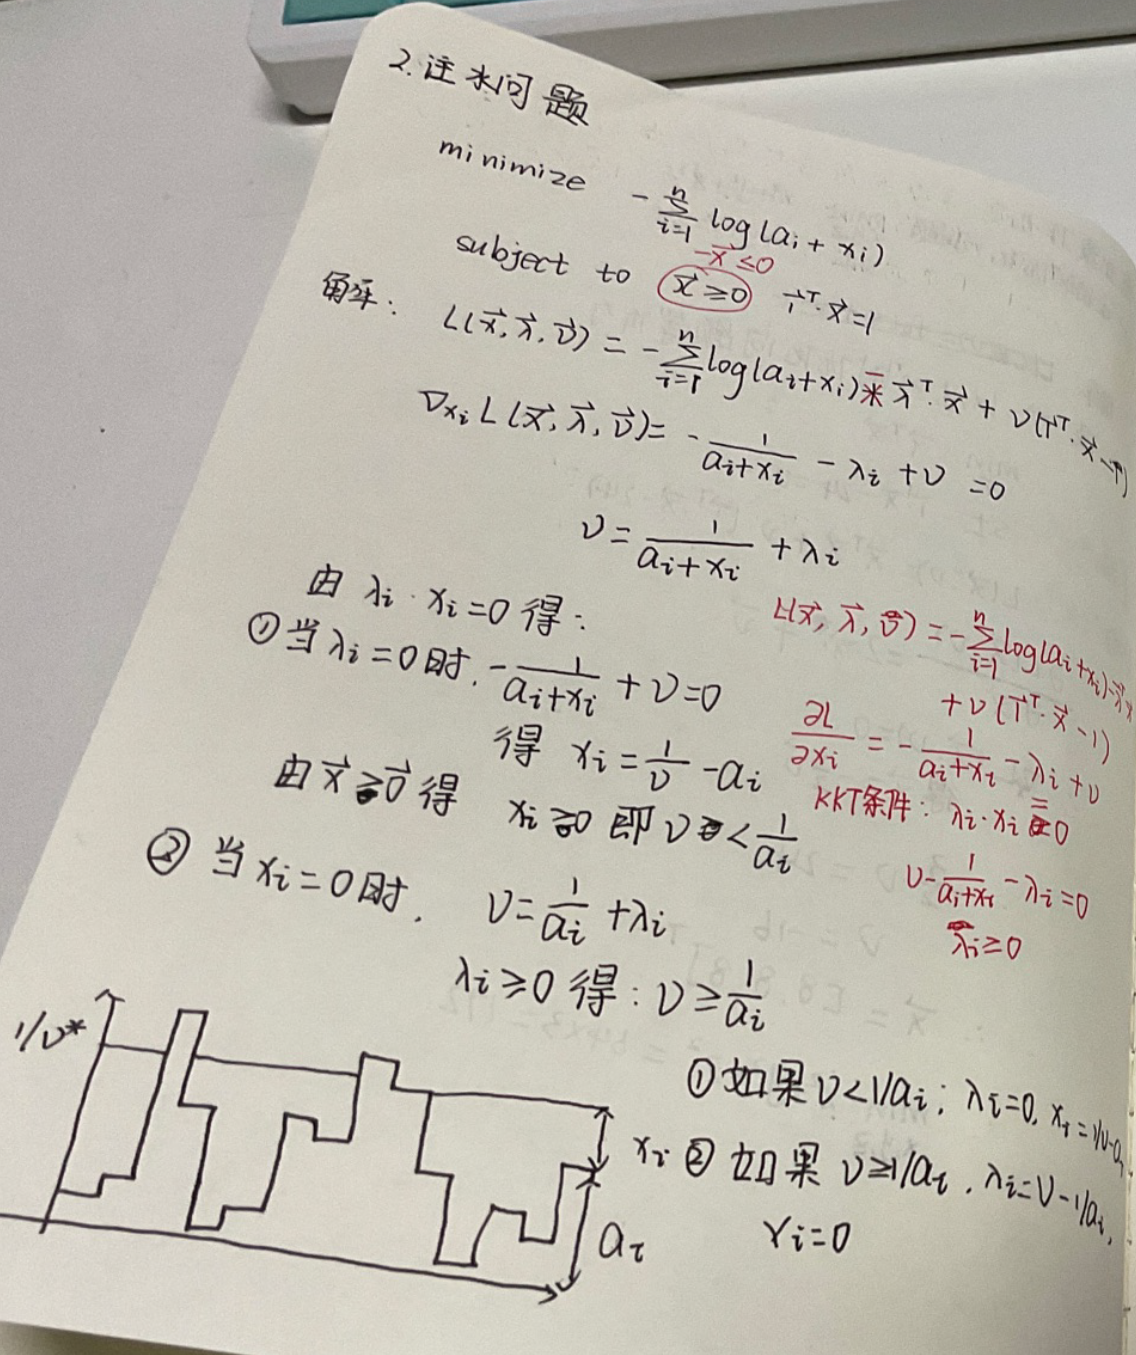 2. 注水问题
minimize -∑_{i=1}^{n} log(aᵢ + xᵢ)
-x⃗ ≤ 0
subject to x⃗ ≥ 0 1⃗ᵀ·x⃗ = 1
解: L(x⃗, λ⃗, ν⃗) = -∑_{i=1}^{n} log(aᵢ+xᵢ) - λ⃗ᵀ·x⃗ + ν(1⃗ᵀ·x⃗ - 1)
∇xᵢ L(x⃗, λ⃗, ν⃗) = -1/(aᵢ+xᵢ) - λᵢ + ν = 0
ν = 1/(aᵢ+xᵢ) + λᵢ
由 λᵢ·xᵢ=0 得:
① 当 λᵢ=0时. -1/(aᵢ+xᵢ) + ν = 0
得 xᵢ = 1/ν - aᵢ
由 x⃗ ≥ 0⃗ 得 xᵢ ≥ 0 即 ν < 1/aᵢ
② 当 xᵢ=0时. ν = 1/aᵢ + λᵢ
λᵢ ≥ 0 得: ν ≥ 1/aᵢ
L(x⃗, λ⃗, ν⃗) = -∑_{i=1}^{n} log(aᵢ+xᵢ) - λ⃗ᵀx
+ ν(1⃗ᵀ·x⃗ - 1)
∂L/∂xᵢ = -1/(aᵢ+xᵢ) - λᵢ + ν
KKT条件: λᵢ·xᵢ = 0
ν - 1/(aᵢ+xᵢ) - λᵢ = 0
λᵢ ≥ 0
① 如果 ν < 1/aᵢ; λᵢ=0, xᵢ = 1/ν-aᵢ
② 如果 ν ≥ 1/aᵢ. λᵢ = ν - 1/aᵢ,
xᵢ=0
1/ν*
xᵢ
aᵢ